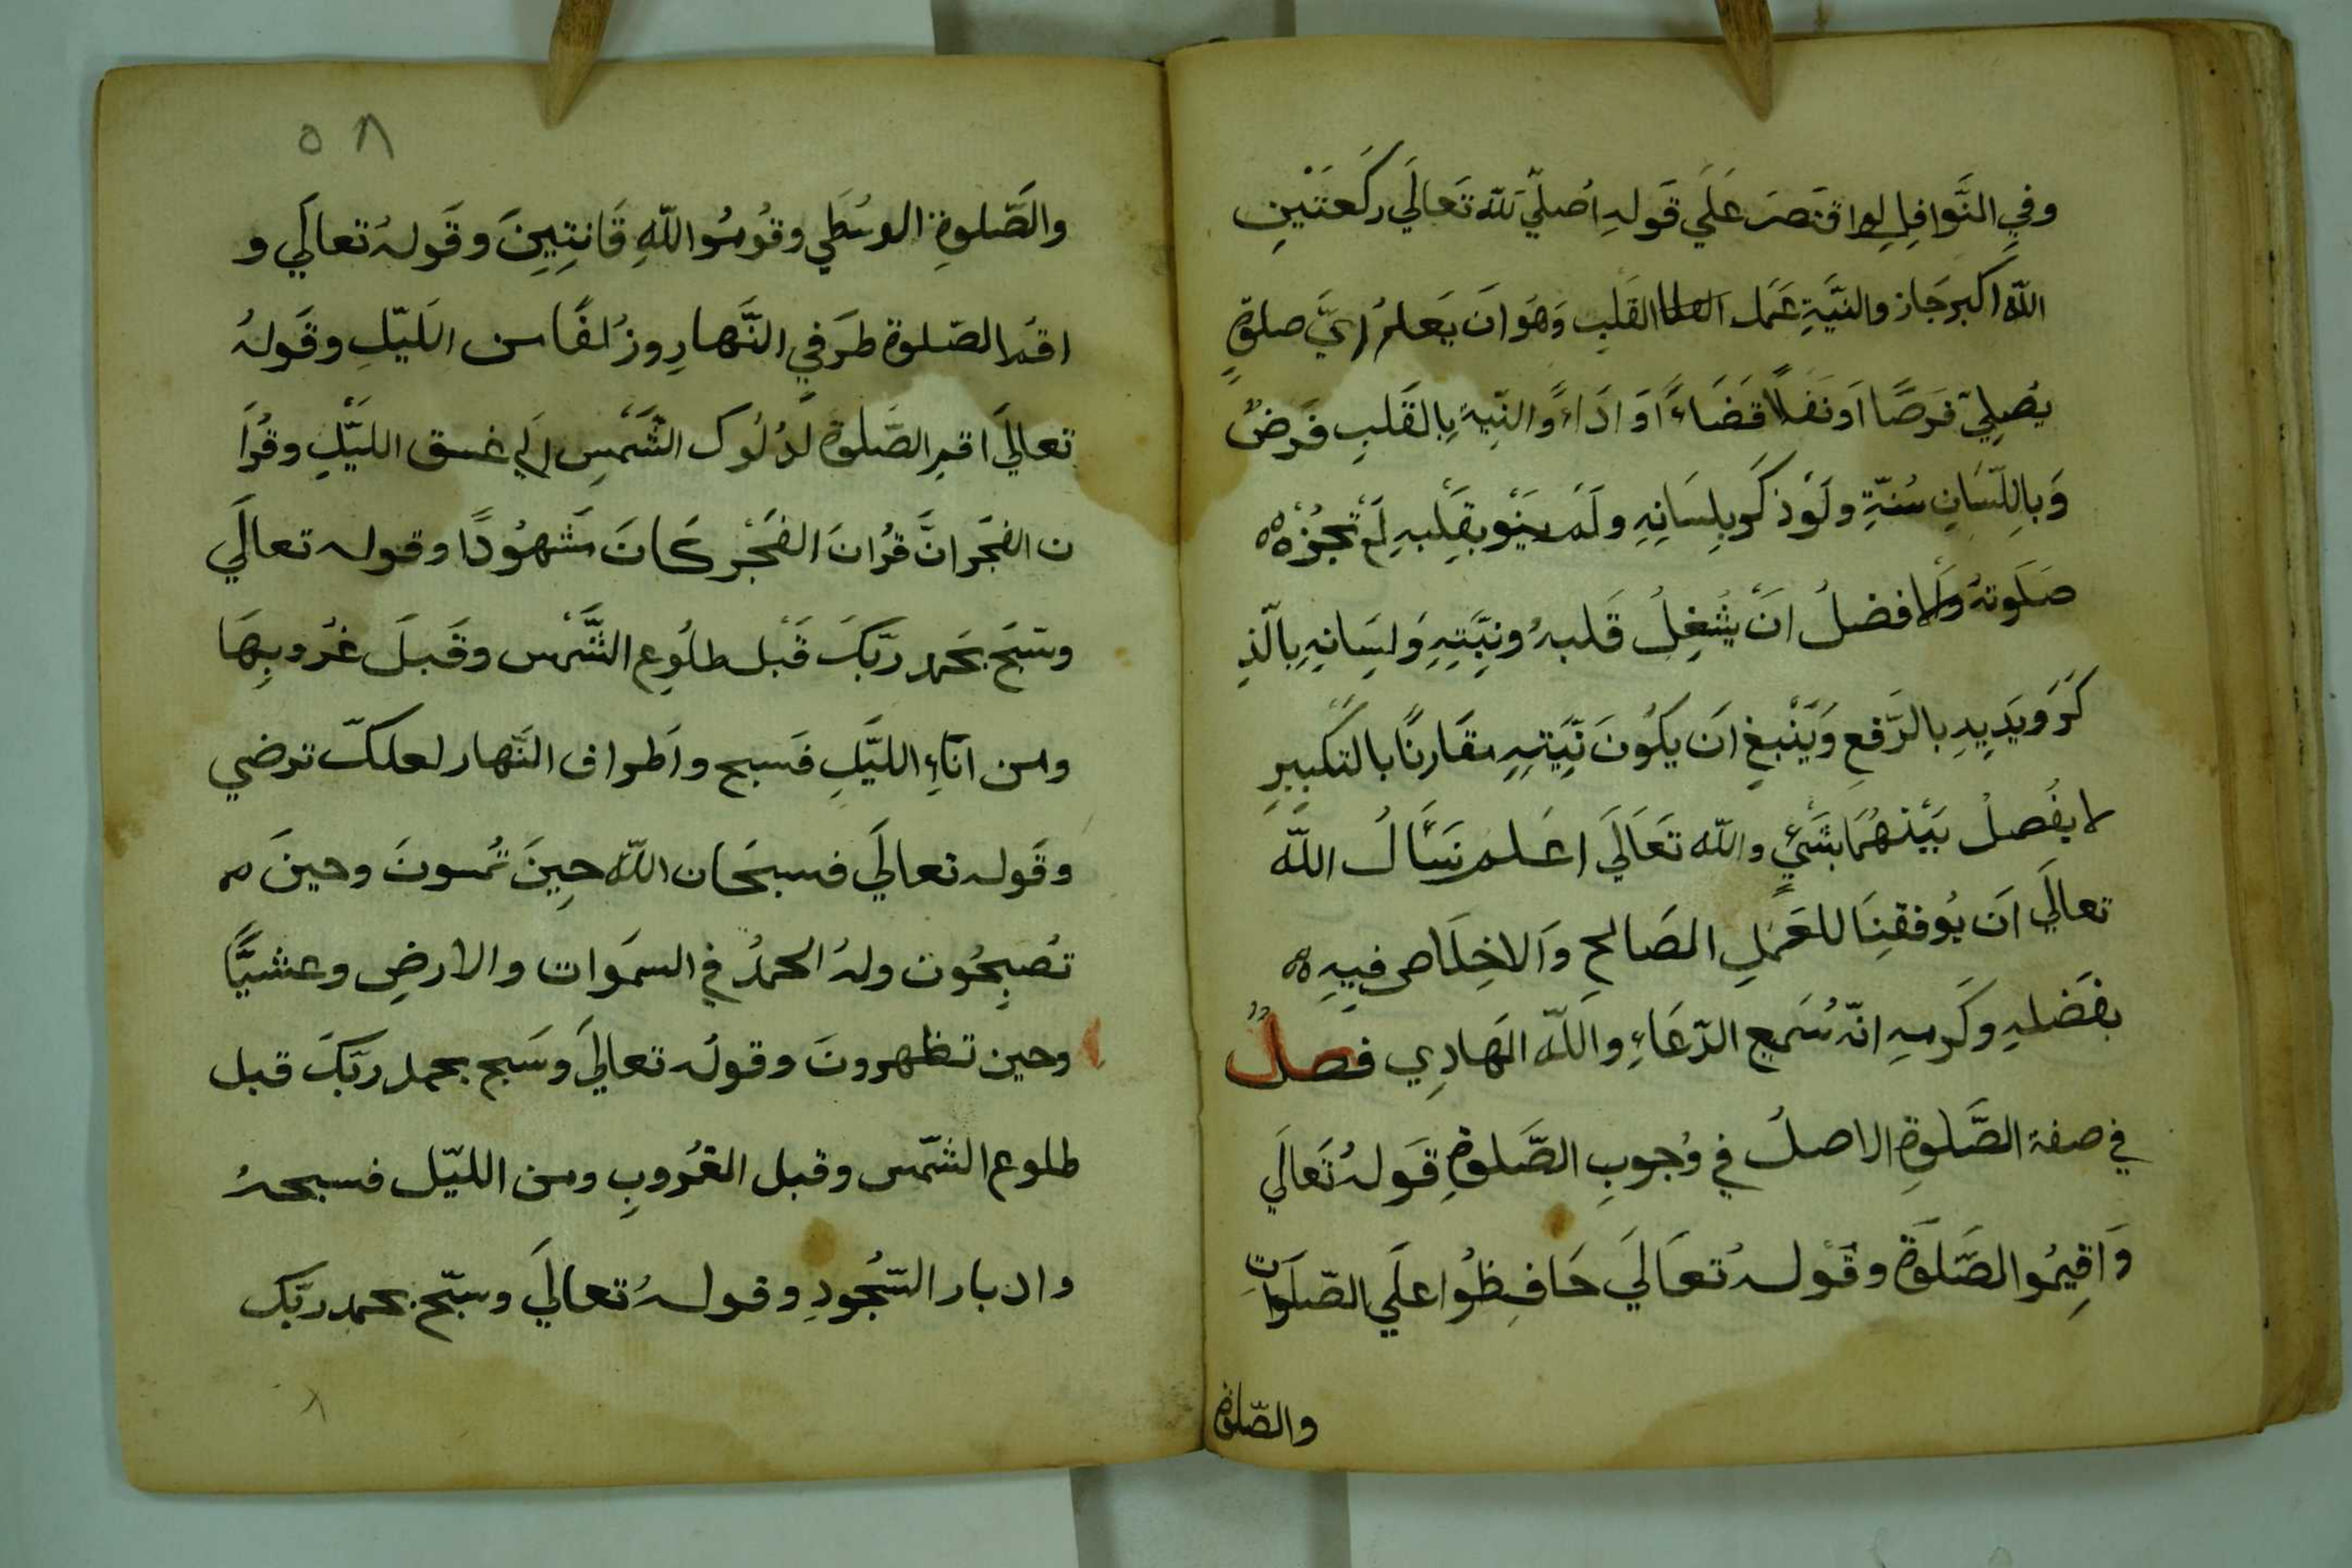 وفي النَّوافِلِ لو اقتصَرَ عَلَي قَولِهِ اُصَلّي للّه تَعَالَي رَكعَتَيْنِ
اللّه اكبر جَاز والنيَّةِ عَمَل القَلبِ وَهُوَ انَ يَعلمُ اَيَّ صلوةٍ
يُصلِيّ فَرضًا اَو نَفلًا قَضَاءً اَوَ ادَاءً والنِيةِ بِالقَلبِ فَرَضٌ
وَبِاللِّسَانِ سُنَّةِ ولَوْ ذكَرَ بِلِسَانِهِ ولَمْ ينَوْ بِقَلْبِهِ لَمْ تَجُزْه
صَلَوتهُ والافضلُ انَ يُشْغِلُ قَلبهُ ونِيَّتِهِ وَلِسَانِهِ بِالّذِ
كَرَ وَيَدِيهِ بالرَّفعِ وَيَنْبغِ انَ يكُونَ نِيَّتِهِ مقَارنًا بالتكبِيرِ
لا يفُصلْ بَيْنهُمَا بشَيْءٍ واللّه تَعَالَي اعَلم نسَاَلُ اللّه
تعالَي انَ يُوفقنَا للعَمَلِ الصَالحِ وَالاخِلَاصِ فيهِ
بفَضلهِ وكَرمهِ انّهُ سَميع الدّعَاءِ واَللّه الهَادِي فصلٌ
في صفة الصَّلوةِ الاصلُ في وُجوبِ الصَّلوةِ قَولهُ تَعَالَي
وَاَقِيمُوا الصَّلَوةَ وقَولهُ تعَالَي حَافِظُوا علَي الصّلَواتِ
والصّلوة
٥٨
والصَّلوةِ الوسُطَي وقُومُوا للّهِ قَانِتِينَ وقَولهُ تعالَي و
اقم الصّلوة طرَفي النَّهارِ وزُلفًا من اللَيّلِ وقَولهُ
تعالَي اقمِ الصَّلوة لدُلُوك الشَّمْسِ اِلَي غسق الليَّلِ وقُرآَ
ن الفجَر انَّ قرُانَ الفَجْرِ كَانَ مَشهُودًا وقوله تعالَي
وسَبّحَ بحَمد ربّكَ قَبْل طلُوعِ الشَّمْس وقَبلَ غرُوبِهَا
ومن آنَاءِ الليَّلِ فَسبح واَطراف النَّهار لعلكّ ترضي
وقَوله تعالَي فسبحَان اللّه حِينَ تُمسونَ وحينَ
تصُبِحُون ولهُ الحمدُ في السمَوات والارضِ وعشيًّا
وحين تظهرونَ وقولُه تعالَي وسَبح بحمد ربّكَ قبل
طلوع الشّمس وقبل الغرُوبِ ومن الليّل فسبحهُ
وادبار السّجُودِ وقولهُ تعالَي وسَبّح بحمد ربّك